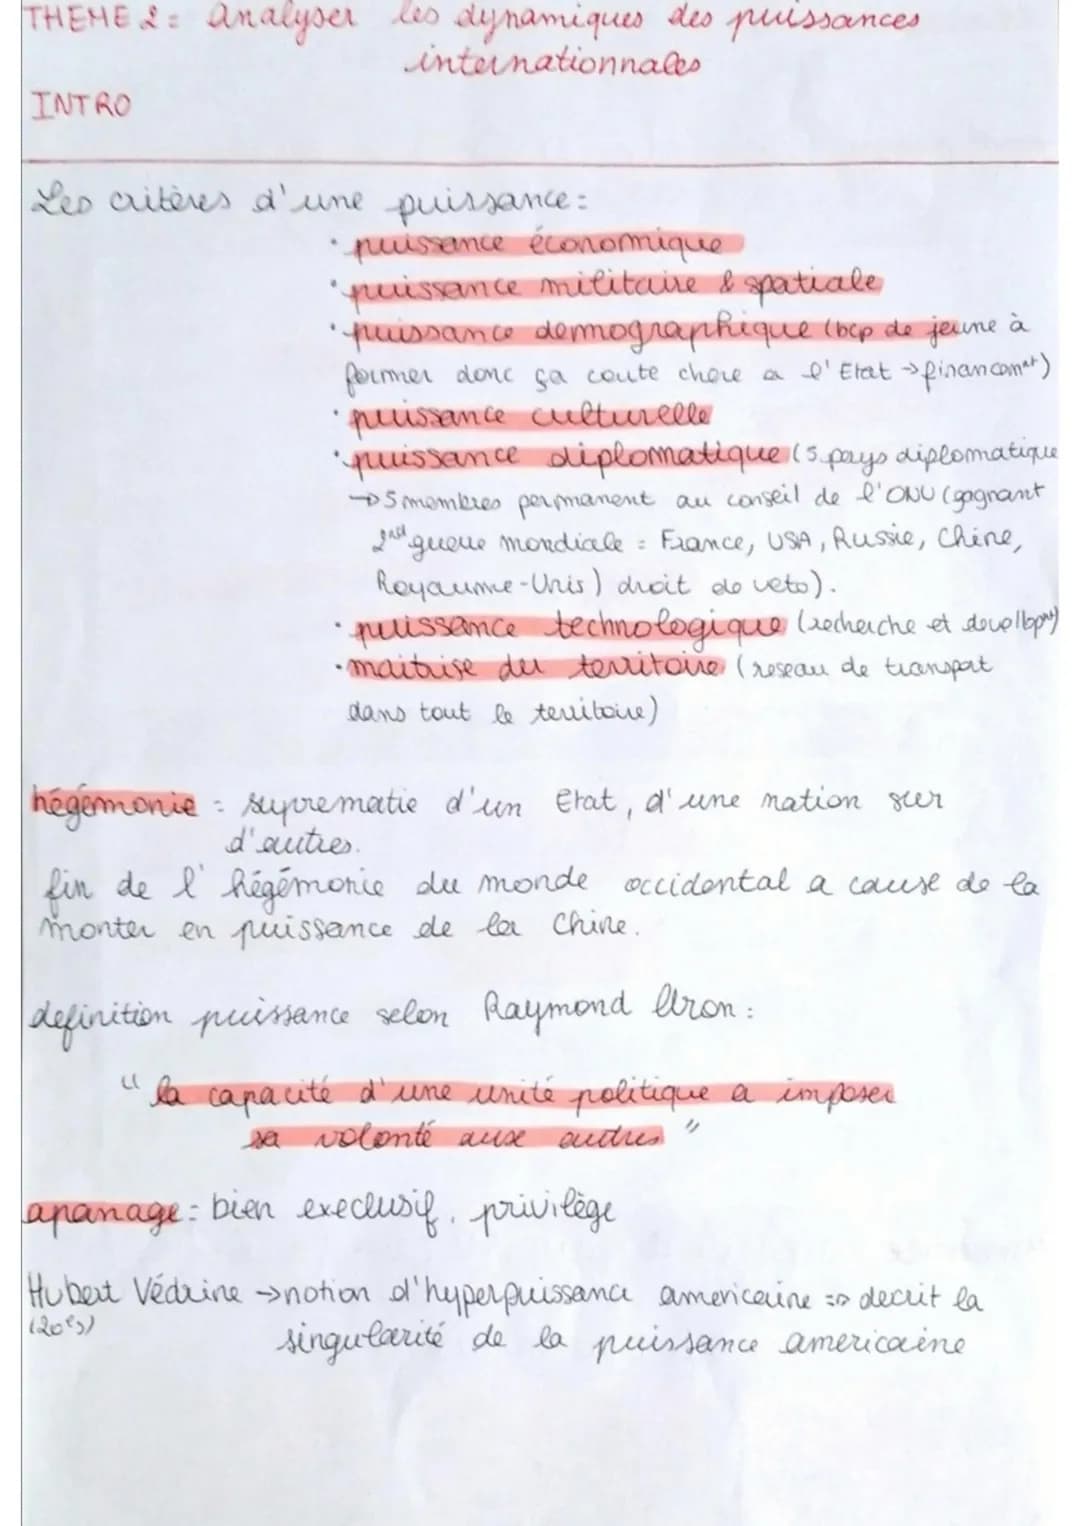 THEME 2 = Analyser les dynamiques des puissances
internationnales
INTRO
Les critères d'une puissance :
• puissance économique
• puissance militaire & spatiale
• puissance demographique (bcp de jeune à
former donc ça coute chere a l'Etat → financemnt)
• puissance culturelle
• puissance diplomatique (5 pays diplomatique
→ 5 membres permanent au conseil de l'ONU (gagnant
2nd guerre mondiale = France, USA, Russie, Chine,
Royaume-Unis) droit de veto).
• puissance technologique (recherche et
• maitrise du territoire (reseau de transport
dans tout le territoire)
hégémonie = suprematie d'un Etat, d'une nation sur
d'autres.
fin de l'hégémonie du monde occidental a cause de la
monter en puissance de la Chine.
definition puissance selon Raymond Aron :
" la capacité d'une unité politique a imposer
sa volonté aux autres "
apanage = bien execlusif, privilège
Hubert Védrine → notion d'hyperpuissance americaine => decrit la
(20es)
singularité de la puissance americaine